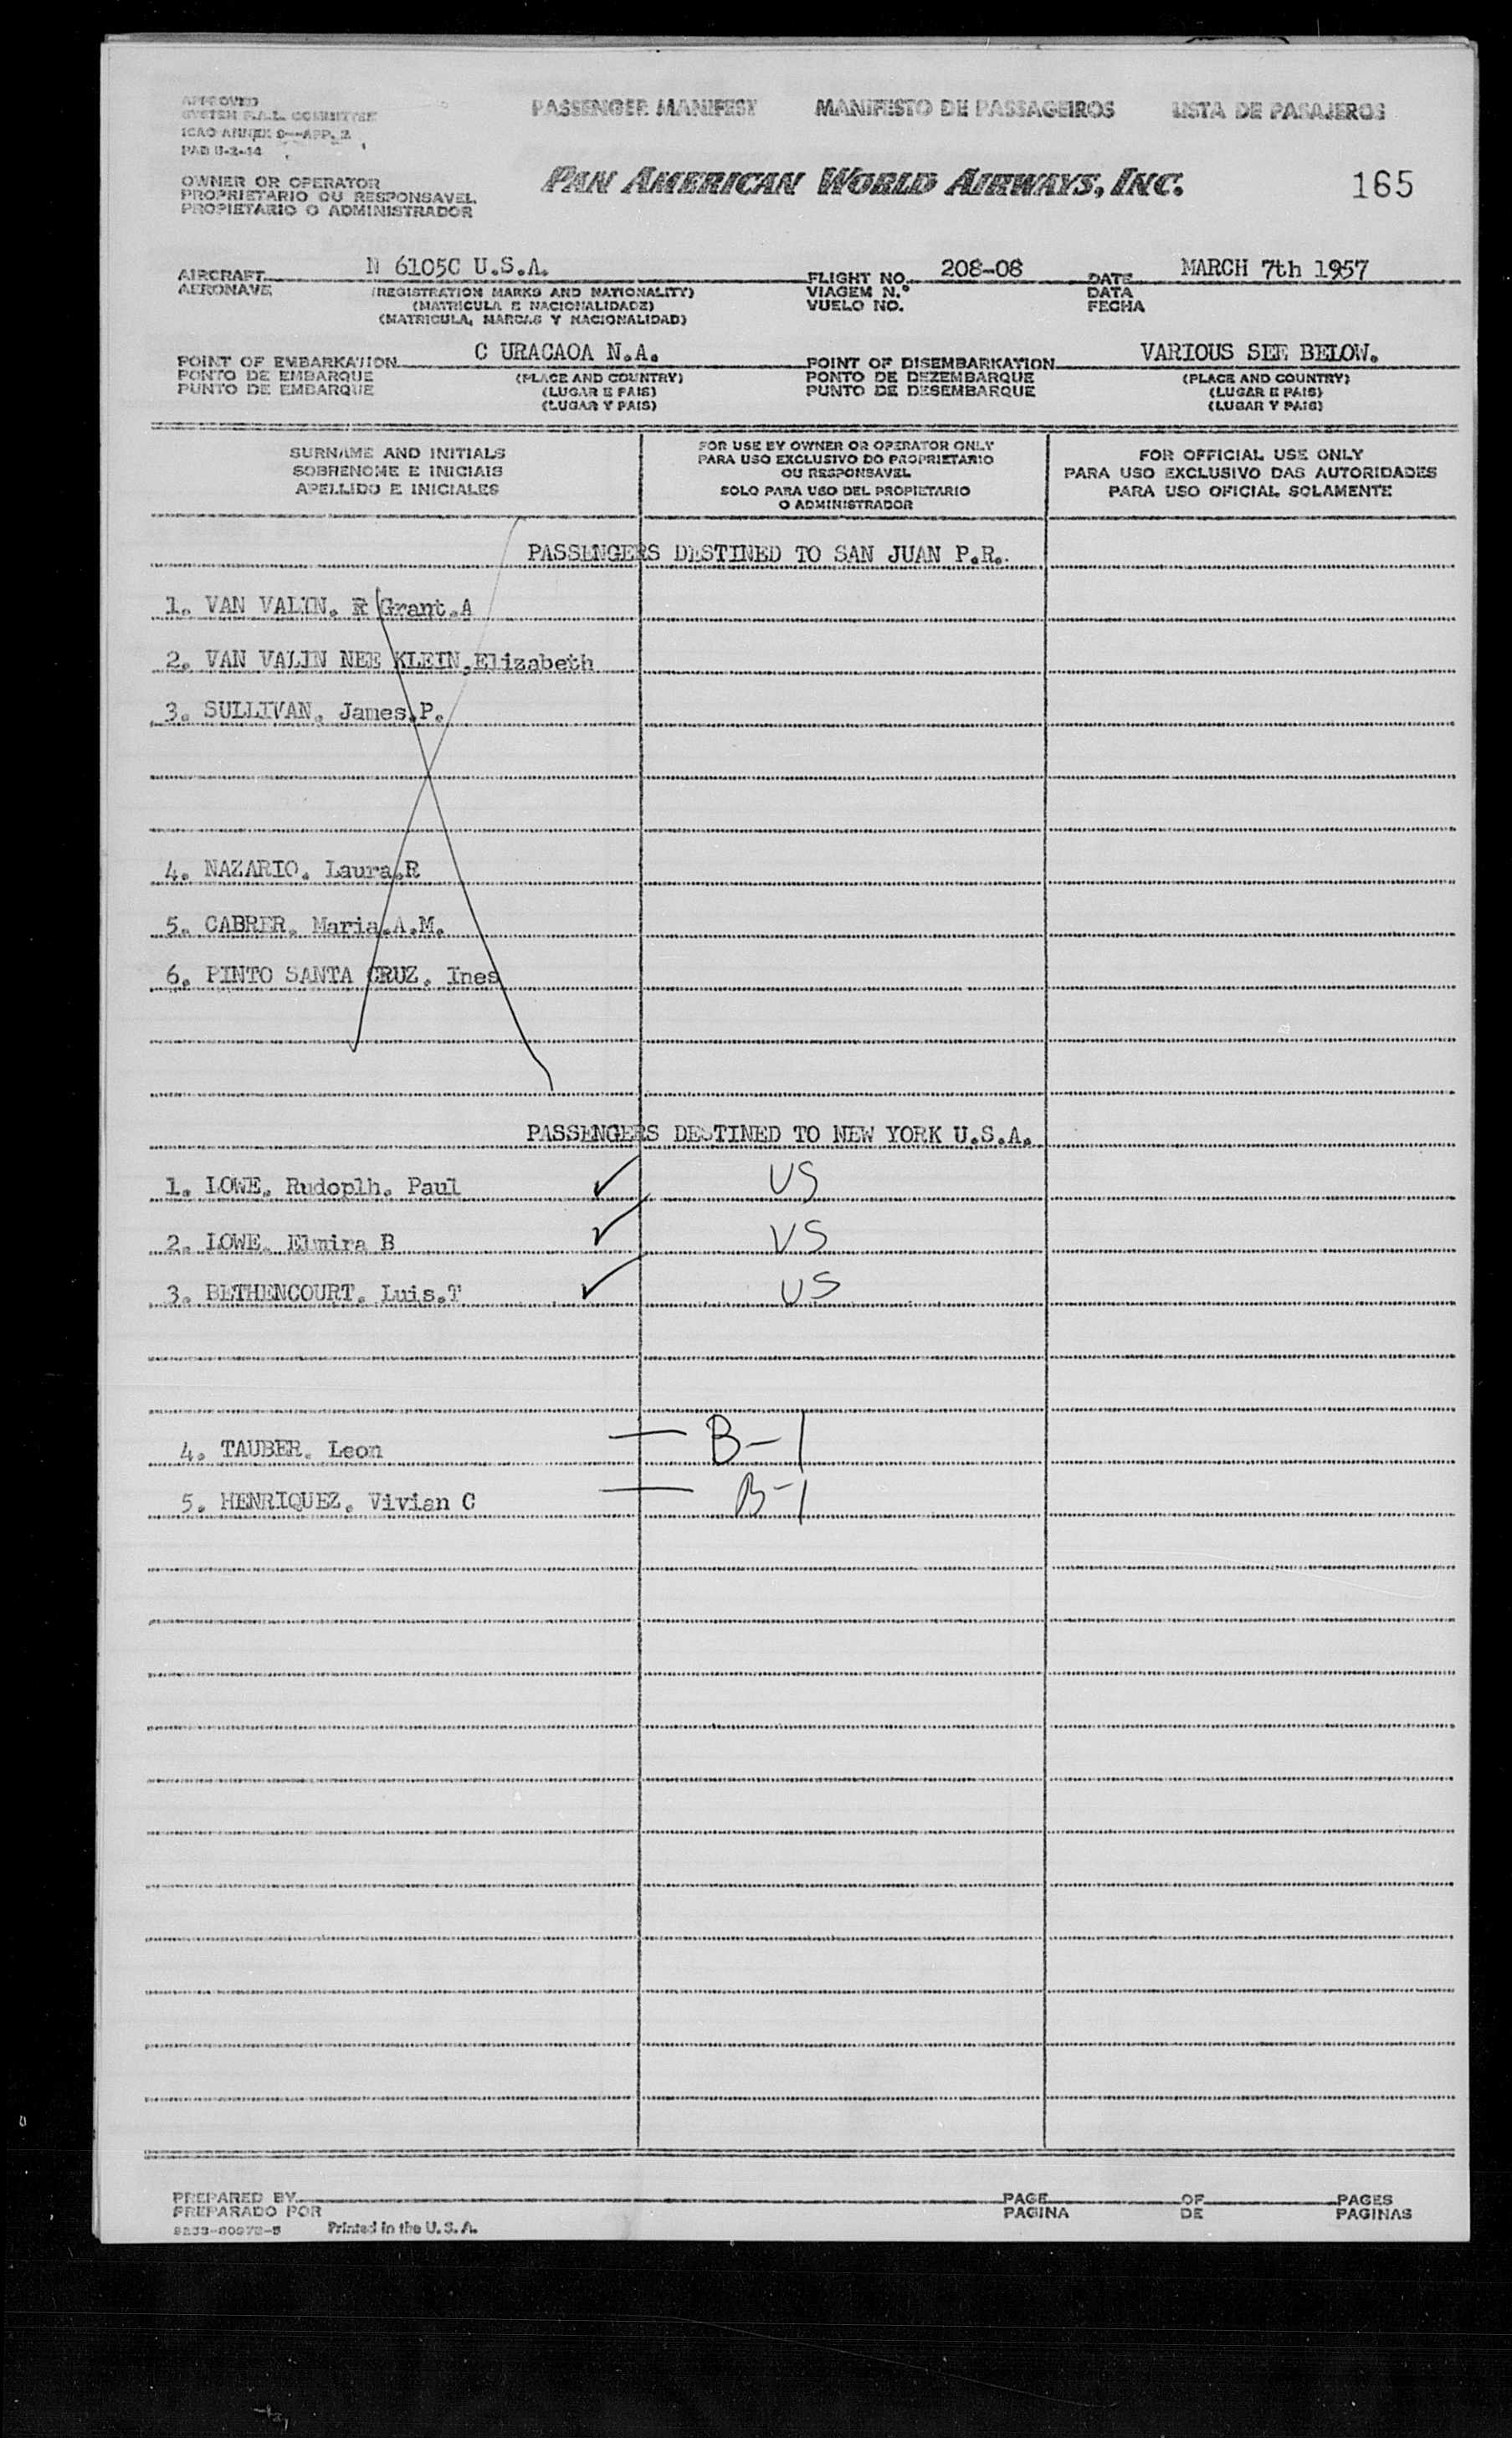 APPROVED
SYSTEM F.A.L. COMMITTEE
ICAO ANNEX 9—APP. 2
PASSENGER MANIFEST MANIFESTO DE PASSAGEIROS LISTA DE PASAJEROS
OWNER OR OPERATOR
PROPRIETARIO OU RESPONSAVEL
PROPIETARIO O ADMINISTRADOR
PAN AMERICAN WORLD AIRWAYS, INC.
165
AIRCRAFT N 6105C U.S.A. FLIGHT NO. 208-08 DATE MARCH 7th 1957
AERONAVE (REGISTRATION MARKS AND NATIONALITY) VIAGEM N.º DATA
(MATRICULA E NACIONALIDADE) VUELO NO. FECHA
(MATRICULA, MARCAS Y NACIONALIDAD)
POINT OF EMBARKATION C URACAOA N.A. POINT OF DISEMBARKATION VARIOUS SEE BELOW.
PONTO DE EMBARQUE (PLACE AND COUNTRY) PONTO DE DEZEMBARQUE (PLACE AND COUNTRY)
PUNTO DE EMBARQUE (LUGAR E PAIS) PUNTO DE DESEMBARQUE (LUGAR E PAIS)
(LUGAR Y PAIS) (LUGAR Y PAIS)
SURNAME AND INITIALS
SOBRENOME E INICIAIS
APELLIDO E INICIALES
FOR USE BY OWNER OR OPERATOR ONLY
PARA USO EXCLUSIVO DO PROPRIETARIO
OU RESPONSAVEL
SOLO PARA USO DEL PROPIETARIO
O ADMINISTRADOR
FOR OFFICIAL USE ONLY
PARA USO EXCLUSIVO DAS AUTORIDADES
PARA USO OFICIAL SOLAMENTE
PASSENGERS DESTINED TO SAN JUAN P.R.
1. VAN VALIN. R Grant.A
2. VAN VALIN NEE KLEIN.Elizabeth
3. SULLIVAN. James.P.
4. NAZARIO. Laura.R
5. CABRER. Maria.A.M.
6. PINTO SANTA CRUZ. Ines
PASSENGERS DESTINED TO NEW YORK U.S.A.
1. LOWE. Rudoplh. Paul ✓ US
2. LOWE. Elmira B ✓ US
3. BETHENCOURT. Luis.T ✓ US
4. TAUBER. Leon — B-1
5. HENRIQUEZ. Vivian C — B-1
PREPARED BY PAGE OF PAGES
PREPARADO POR PAGINA DE PAGINAS
Printed in the U.S.A.